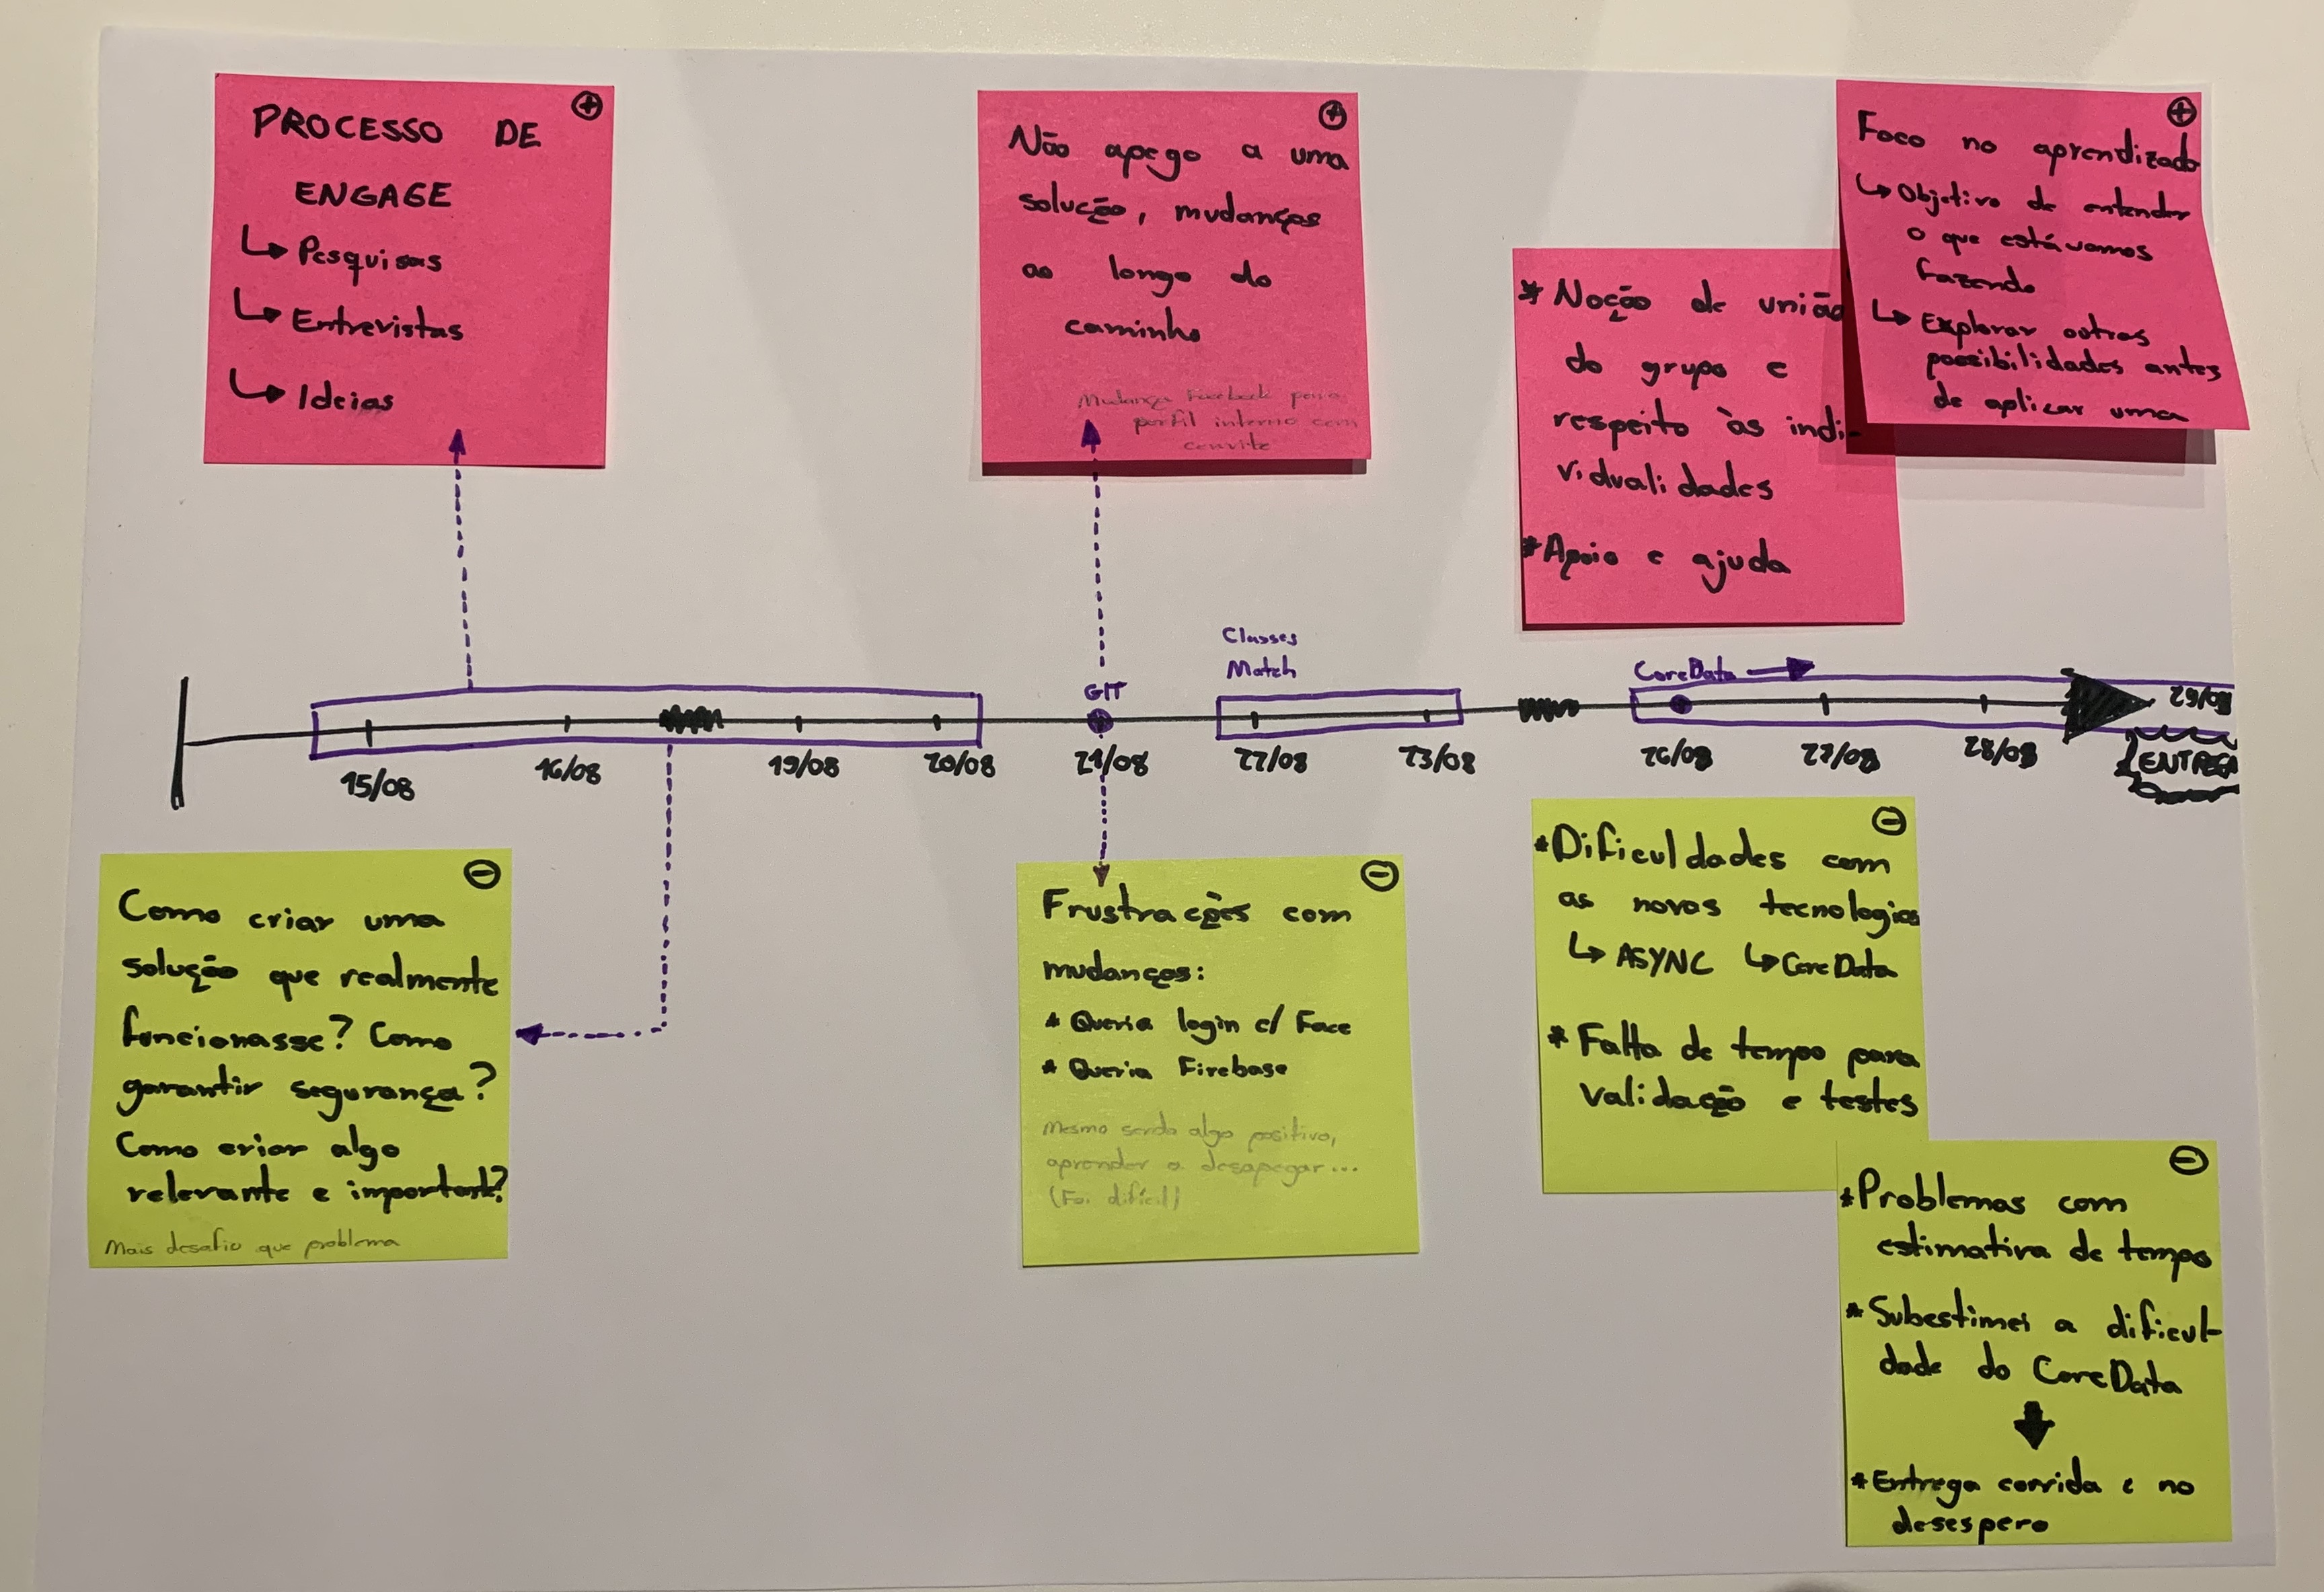 PROCESSO DE
ENGAGE
↳ Pesquisas
↳ Entrevistas
↳ Ideias
+
Não apego a uma
solução, mudanças
ao longo do
caminho
Mudança Facebook para
perfil interno com
convite
+
* Noção de união
do grupo e
respeito às indi-
vidualidades
* Apoio e ajuda
+
Foco no aprendizado
↳ Objetivo de entender
o que estávamos
fazendo
↳ Explorar outras
possibilidades antes
de aplicar uma
GIT
Classes
Match
CoreData →
15/08
16/08
19/08
20/08
21/08
22/08
23/08
26/08
27/08
28/08
29/08
ENTREGA
-
Como criar uma
solução que realmente
funcionasse? Como
garantir segurança?
Como criar algo
relevante e important?
Mais desafio que problema
-
Frustrações com
mudanças:
* Queria login c/ Face
* Queria Firebase
Mesmo sendo algo positivo,
aprender a desapegar...
(Foi difícil)
-
* Dificuldades com
as novas tecnologias
↳ ASYNC ↳ CoreData
* Falta de tempo para
validação e testes
-
* Problemas com
estimativa de tempo
* Subestimei a dificul-
dade do CoreData
* Entrega corrida e no
desespero